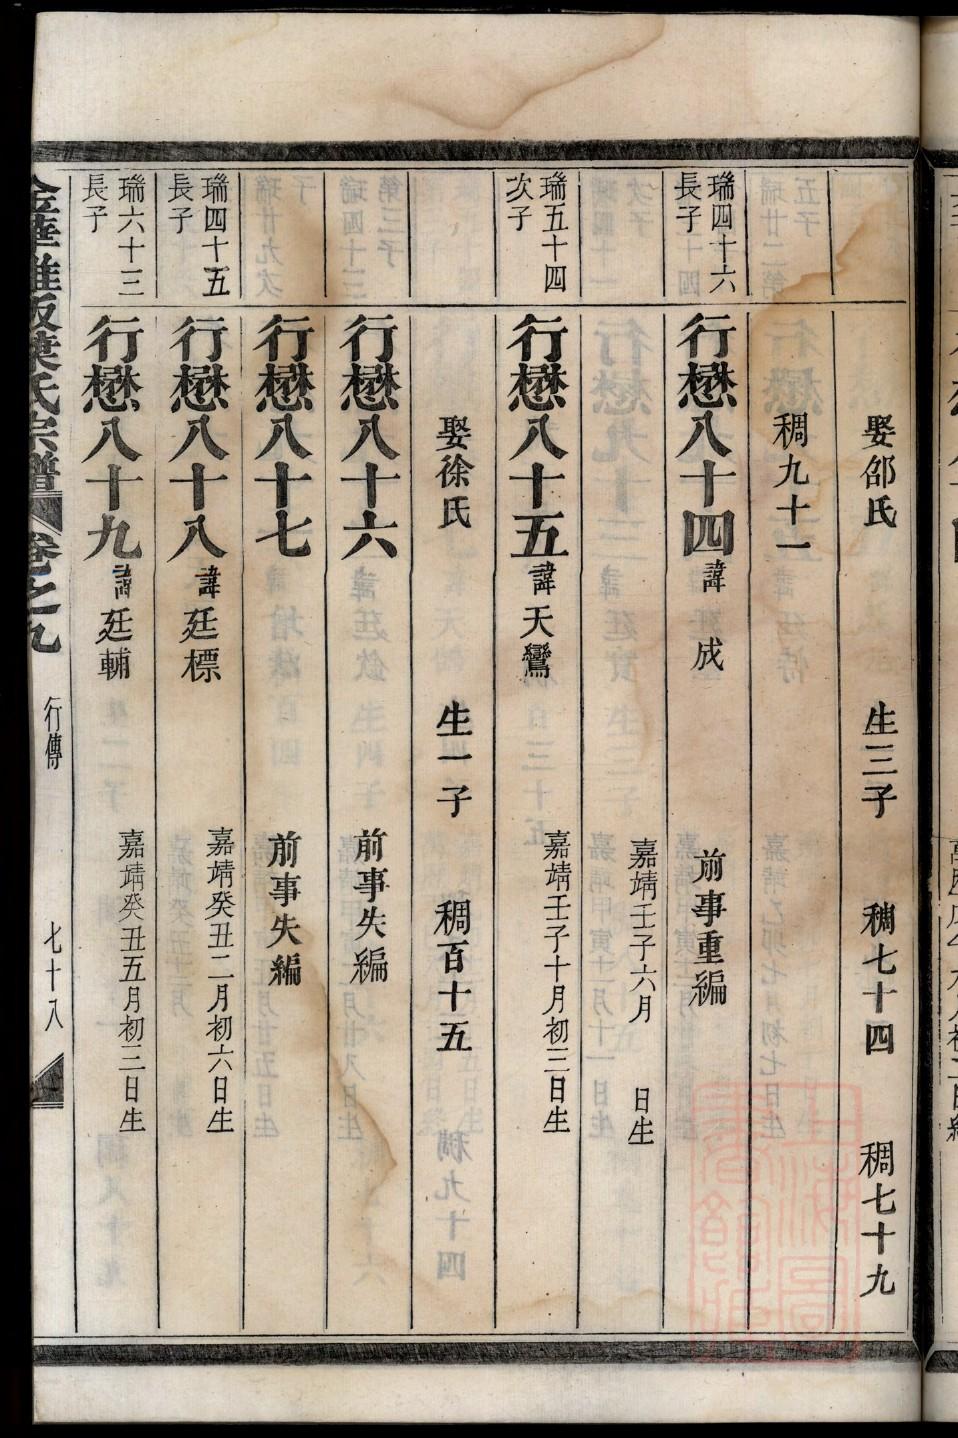 娶邵氏 生三子 稠七十四 稠七十九
稠九十一
瑞四十六
長子
行懋八十四 諱廷成 前事重編
嘉靖壬子六月 日生
瑞五十四
次子
行懋八十五 諱天鸞 嘉靖壬子十月初三日生
娶徐氏 生一子 稠百十五
行懋八十六 前事失編
行懋八十七 前事失編
瑞四十五
長子
行懋八十八 諱廷標 嘉靖癸丑二月初六日生
瑞六十三
長子
行懋八十九 諱廷輔 嘉靖癸丑五月初三日生
葉氏宗譜 卷之九 行傳 七十八